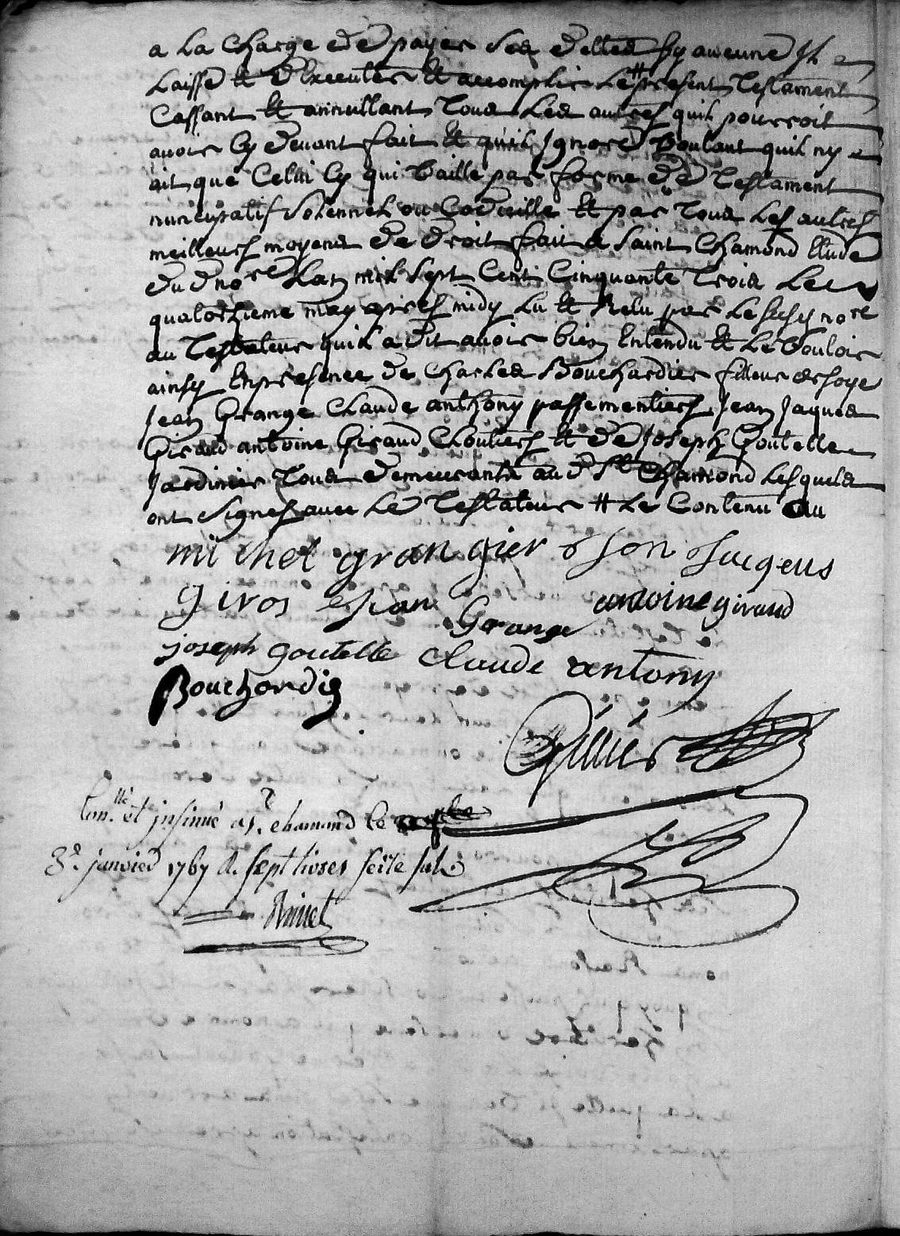 a la charge de payer ses dettes sy aucune Il
laisse et d'Executer et accomplir le # present Testament
Cassant et annullant Tous Les autres quil pourroit
avoir Cy devant fait et quil Ignore Voulant quil ny
ait que Celui Cy qui Vaille par forme de Testament
nuncupatif Solennel ou Codicille et par Tous Les autres
meilleurs moyens de droit fait a Saint Chamond Etude
du d nore Lan mil Sept Cent Cinquante Trois Le
quatorzieme may apres midy Lu et Relu par le susy nore
au Testateur quil a dit avoir bien Entendu et Le Vouloir
ainsy En presence de Charles Bouchardier filleur de soye
Jean Grange Claude anthony passementiers Jean Jaques
Giraud antoine Giraud Cloutiers et de Joseph Goutelle
Jardinier Tous demeurants au d St Chamond Lesquels
ont Signes avec Le Testateur # Le Contenu au
michel grangier
giros Jean Grange antoine giraud
joseph goutelle claude antony
Bouchardie
Conlle et insinué a St. chamond le
8e janvied 1767 R. sept livres seize sols